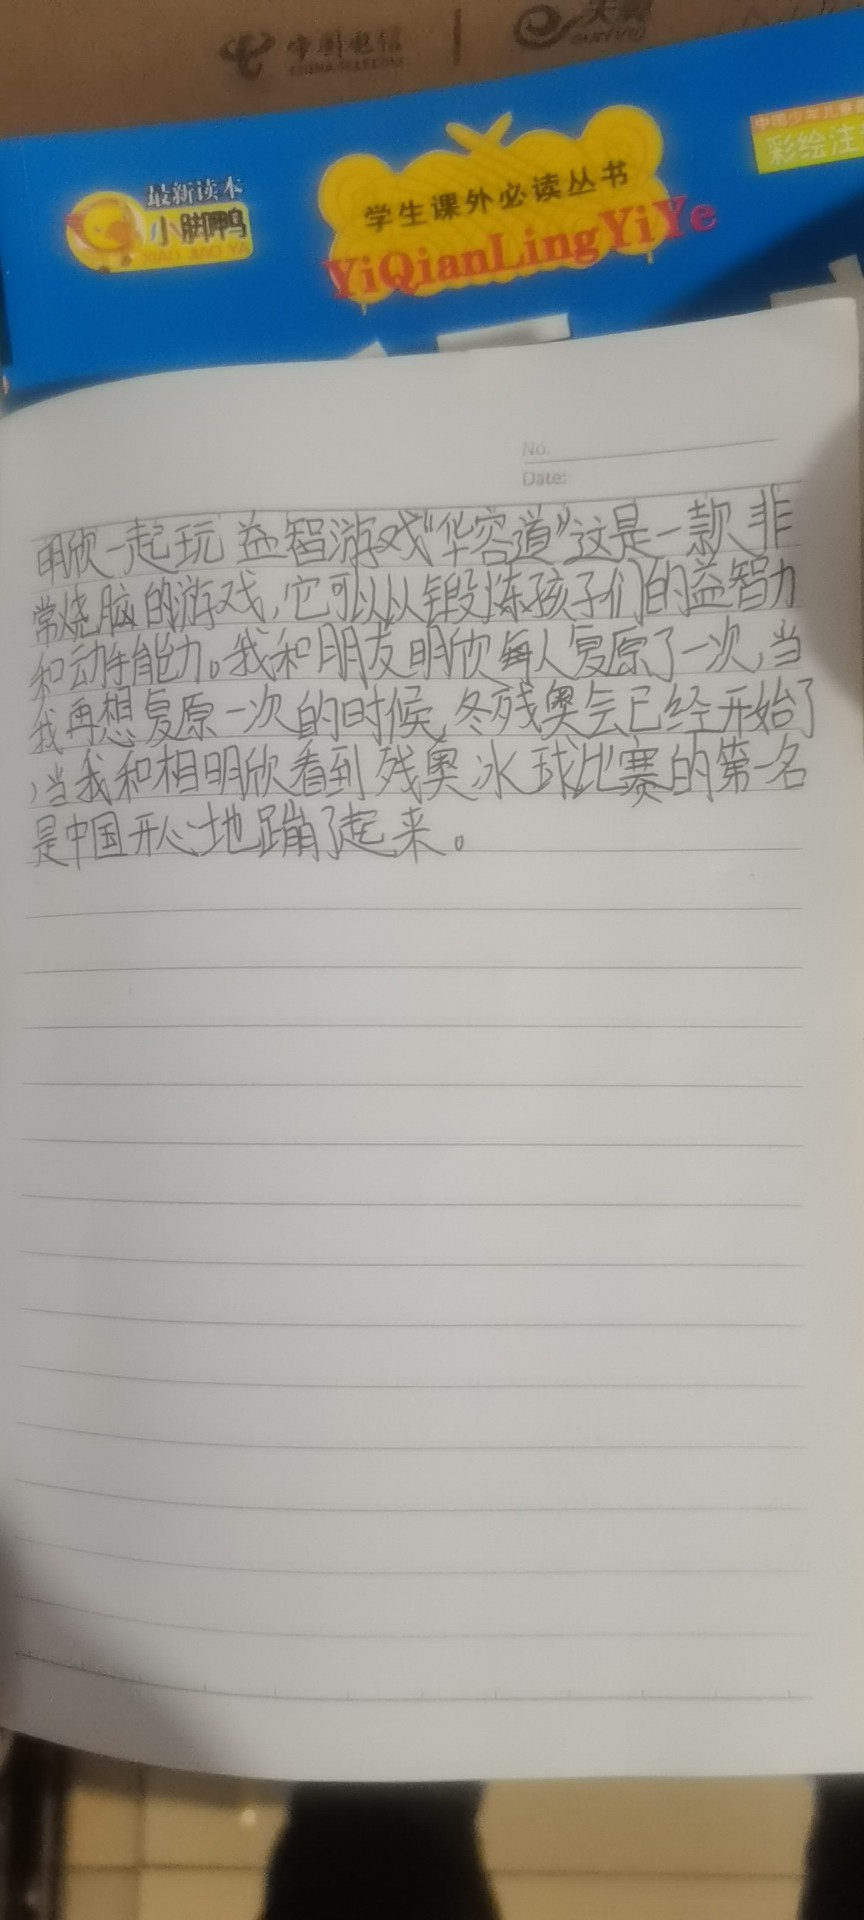 中国电信
CHINA TELECOM
天翼
最新读本
小脚鸭
学生课外必读丛书
YiQianLingYiYe
中国少年儿童
彩绘注
No.
Date:
明欣一起玩益智游戏“华容道”这是一款非
常烧脑的游戏,它可以从锻炼孩子们的益智力
和动手能力。我和朋友明欣每人复原了一次,当
我再想复原一次的时候,冬残奥会已经开始了
,当我和相明欣看到残奥冰球比赛的第一名
是中国开心地蹦了起来。